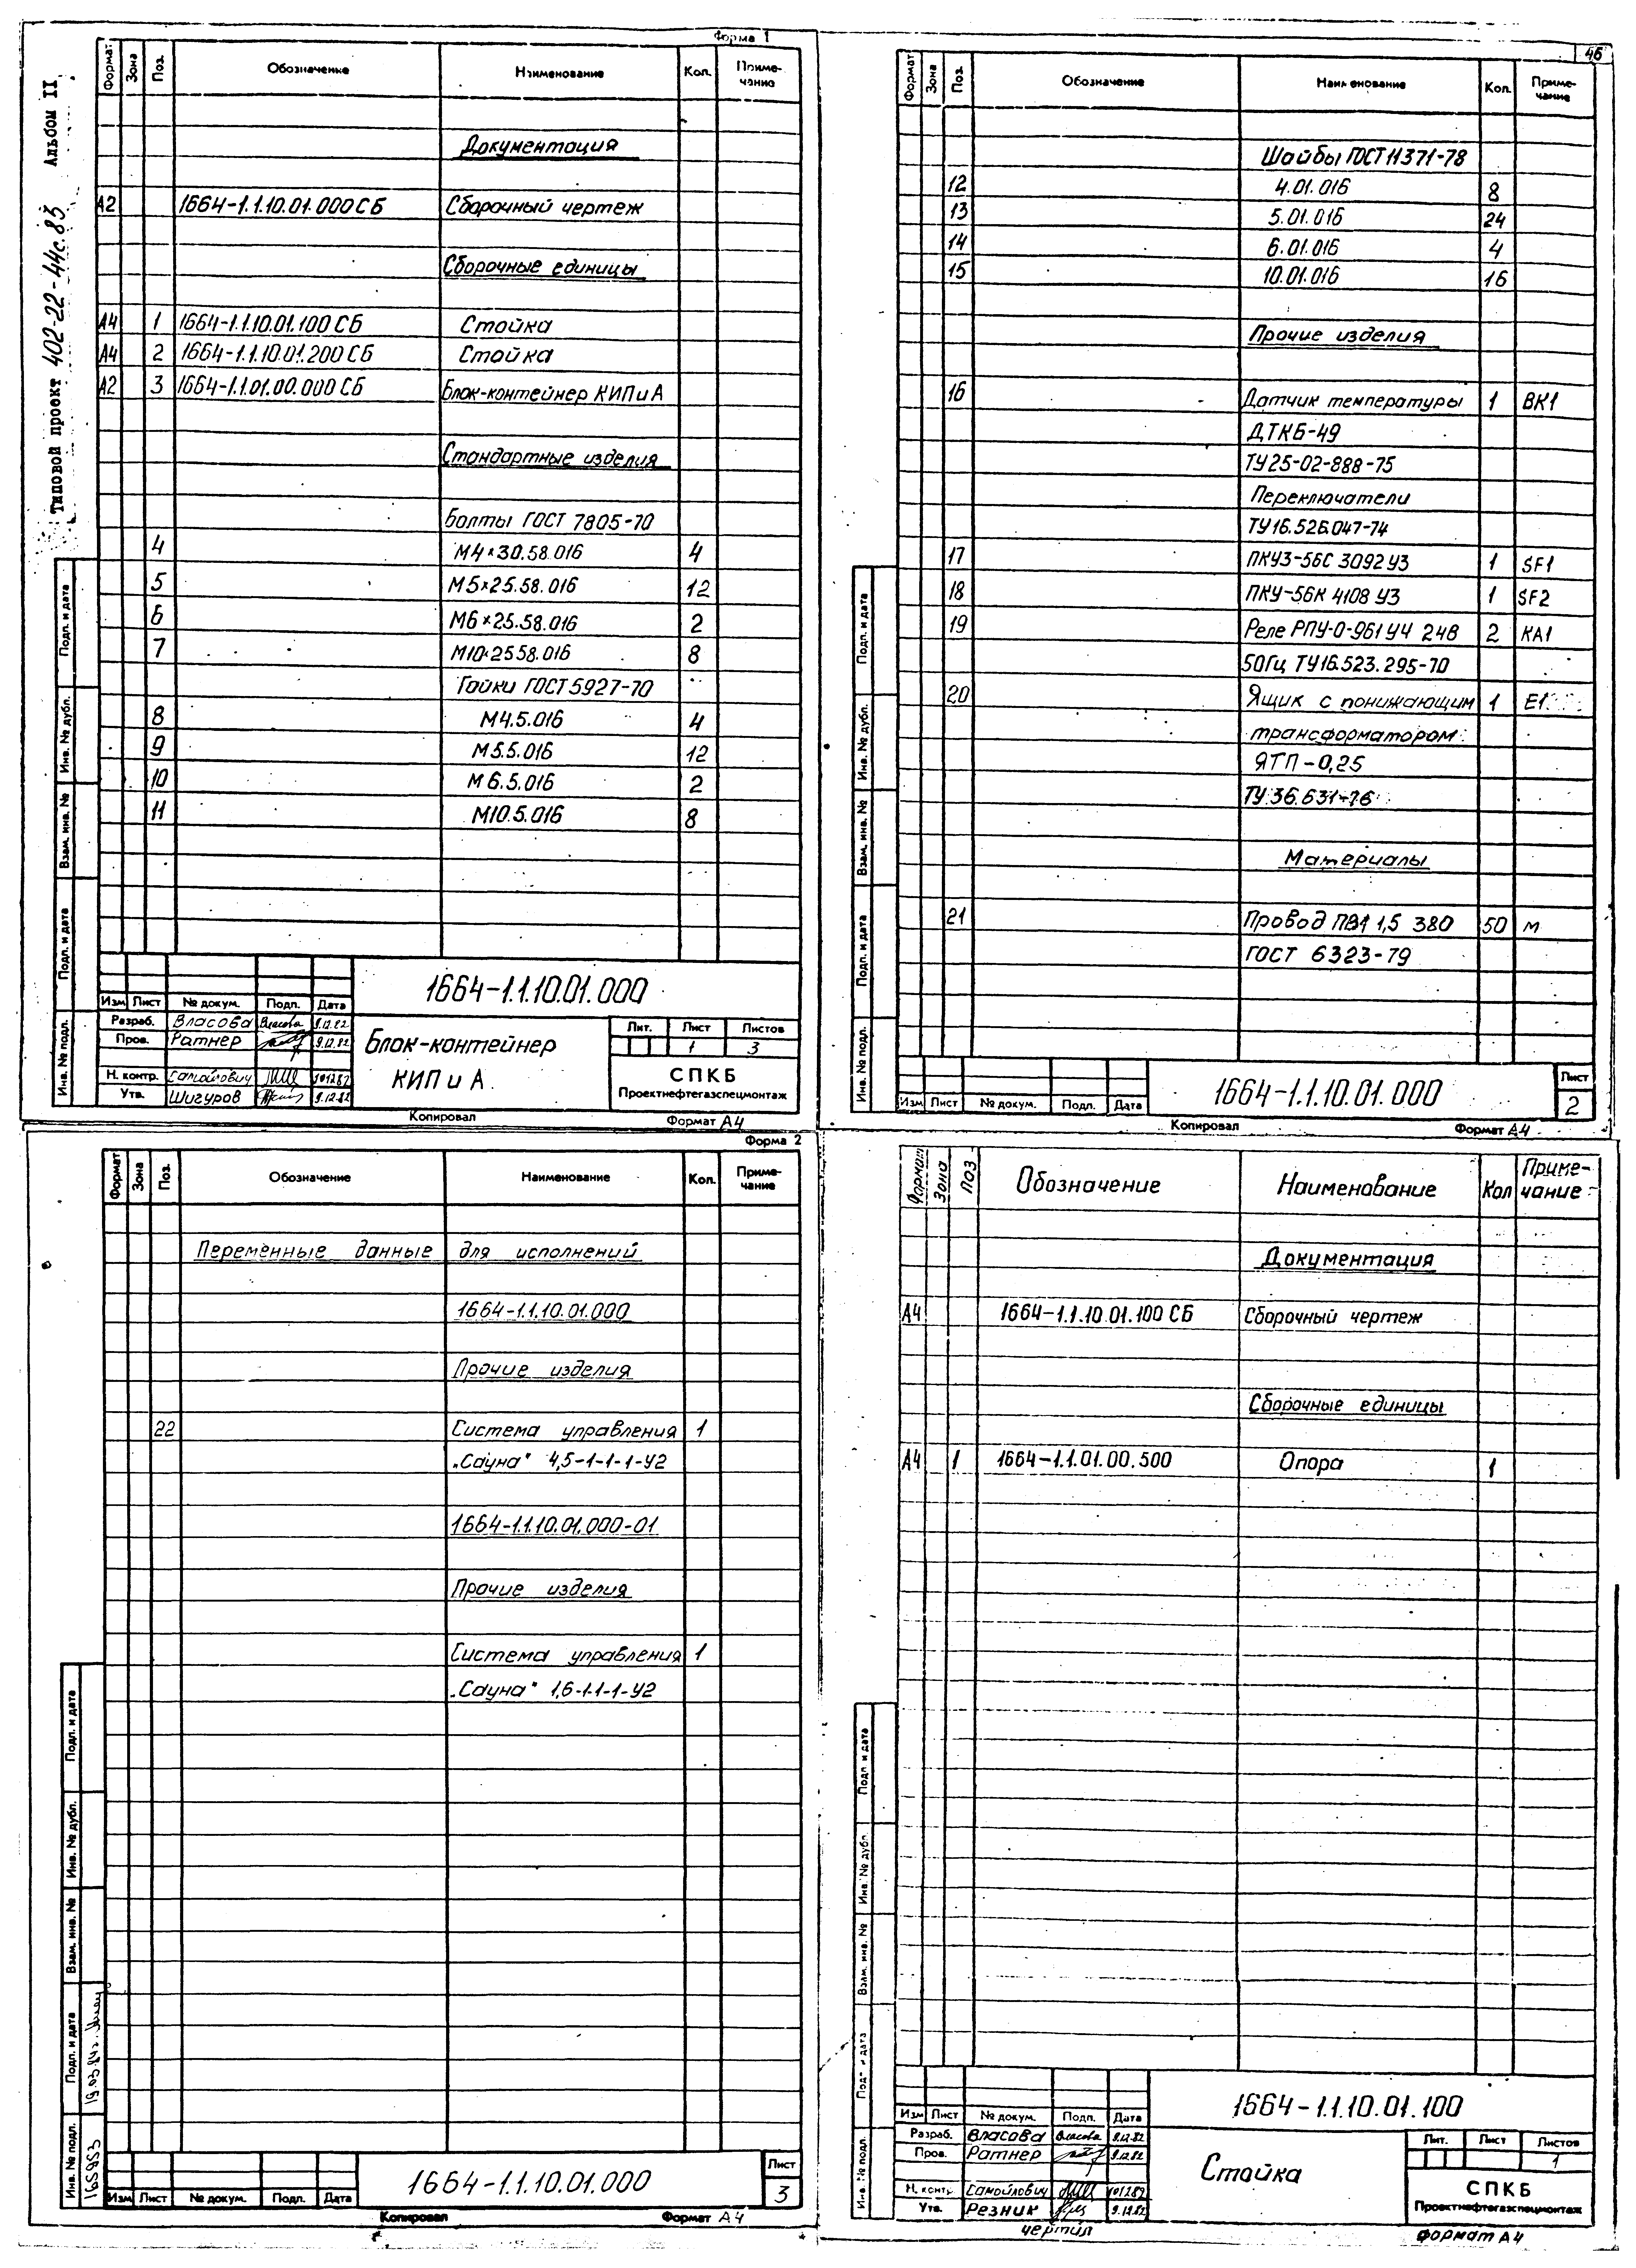 Типовой проект 402-22-44с.83 Альбом II
Форма 1
Формат Зона Поз. Обозначение Наименование Кол. Приме-
чание
Документация
А2 1664-1.1.10.01.000 СБ Сборочный чертеж
Сборочные единицы
А4 1 1664-1.1.10.01.100 СБ Стойка
А4 2 1664-1.1.10.01.200 СБ Стойка
А2 3 1664-1.1.01.00.000 СБ Блок-контейнер КИП и А
Стандартные изделия
Болты ГОСТ 7805-70
4 М4×30.58.016 4
5 М5×25.58.016 12
6 М6×25.58.016 2
7 М10×25 58.016 8
Гайки ГОСТ 5927-70
8 М4.5.016 4
9 М5.5.016 12
10 М6.5.016 2
11 М10.5.016 8
Подп. и дата
Инв. № дубл.
Взам. инв. №
Подп. и дата
Инв. № подл.
1664-1.1.10.01.000
Изм Лист № докум. Подп. Дата
Разраб. Власова Власова 9.12.82
Пров. Ратнер 9.12.82
Н. контр. Самойлович 10.12.82
Утв. Шигуров 9.12.82
Блок-контейнер
КИП и А
Лит. Лист Листов
1 3
СПКБ
Проектнефтегазспецмонтаж
Копировал Формат А4
46
Формат Зона Поз. Обозначение Наименование Кол. Приме-
чание
Шайбы ГОСТ 11371-78
12 4.01.016 8
13 5.01.016 24
14 6.01.016 4
15 10.01.016 16
Прочие изделия
16 Датчик температуры 1 ВК1
ДТКБ-49
ТУ25-02-888-75
Переключатели
ТУ16.526.047-74
17 ПКУ3-56С 3092 У3 1 SF1
18 ПКУ-56К 4108 У3 1 SF2
19 Реле РПУ-0-961 У4 24В 2 КА1
50Гц ТУ16.523.295-70
20 Ящик с понижающим 1 Е1
трансформатором
ЯТП-0,25
ТУ 36.631-76
Материалы
21 Провод ПВ1 1,5 380 50 м
ГОСТ 6323-79
Подп. и дата
Инв. № дубл.
Взам. инв. №
Подп. и дата
Инв. № подл.
Изм Лист № докум. Подп. Дата
1664-1.1.10.01.000
Лист
2
Копировал Формат А4
Форма 2
Формат Зона Поз. Обозначение Наименование Кол. Приме-
чание
Переменные данные для исполнений
1664-1.1.10.01.000
Прочие изделия
22 Система управления 1
„Сауна" 4,5-1-1-1-У2
1664-1.1.10.01.000-01
Прочие изделия
Система управления 1
„Сауна" 1,6-1-1-1-У2
Подп. и дата
Инв. № дубл.
Взам. инв. №
Подп. и дата
Инв. № подл.
Изм Лист № докум. Подп. Дата
1664-1.1.10.01.000
Лист
3
Копировал Формат А4
Формат Зона Поз Обозначение Наименование Кол Приме-
чание
Документация
А4 1664-1.1.10.01.100 СБ Сборочный чертеж
Сборочные единицы
А4 1 1664-1.1.01.00.500 Опора 1
Подп. и дата
Инв. № дубл.
Взам. инв. №
Подп. и дата
Инв. № подл.
1664-1.1.10.01.100
Изм Лист № докум. Подп. Дата
Разраб. Власова Власова 9.12.82
Пров. Ратнер 9.12.82
Н. контр. Самойлович 10.12.82
Утв. Резник 9.12.82
Стойка
Лит. Лист Листов
1
СПКБ
Проектнефтегазспецмонтаж
чертил Формат А4